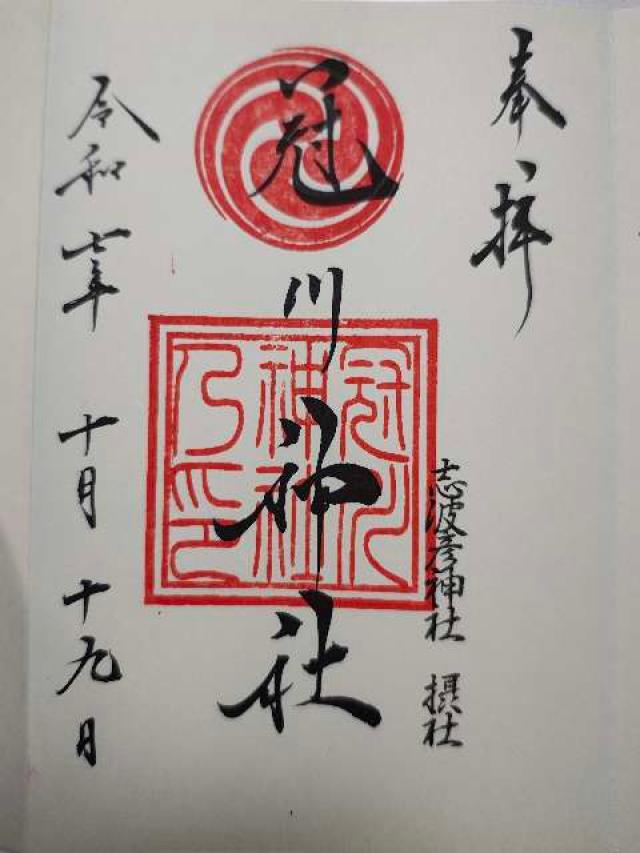 奉拝
志波彦神社 摂社
冠川神社
冠川
神社
乃印
令和七年 十月 十九日